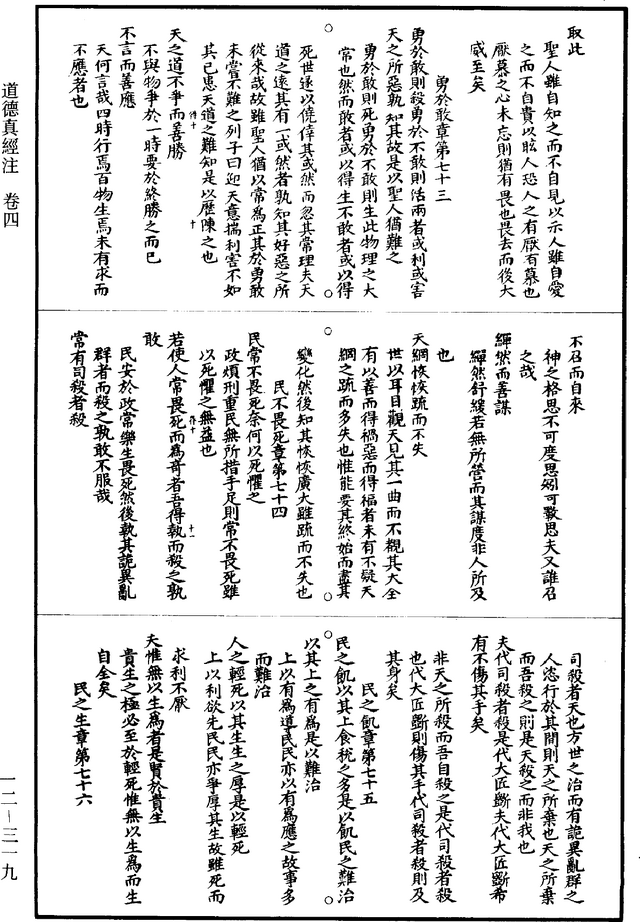 取此
聖人雖自知之而不自見以示人雖自愛
之而不自貴以眩人恐人之有厭有慕也
厭慕之心未忘則猶有畏也畏去而後大
威至矣
勇於敢章第七十三
勇於敢則殺勇於不敢則活兩者或利或害
天之所惡孰知其故是以聖人猶難之
勇於敢則死勇於不敢則生此物理之大
常也然而敢者或以得生不敢者或以得
死世遂以僥倖其或然而忽其常理夫天
道之遠其有一或然者孰知其好惡之所
從來哉故雖聖人猶以常為正其於勇敢
未嘗不難之列子曰迎天意揣利害不如
其已患天道之難知是以歷陳之也
天之道不爭而善勝
不與物爭於一時要於終勝之而已
不言而善應
天何言哉四時行焉百物生焉未有求而
不應者也
不召而自來
神之格思不可度思矧可斁思夫又誰召
之哉
繟然而善謀
繟然舒緩若無所營而其謀度非人所及
也
天網恢恢疏而不失
世以耳目觀天見其一曲而不覩其大全
有以善而得禍惡而得福者未有不疑天
網之疏而多失也惟能要其終始而盡其
變化然後知其恢恢廣大雖疏而不失也
民不畏死章第七十四
民常不畏死奈何以死懼之
政煩刑重民無所措手足則常不畏死雖
以死懼之無益也
若使人常畏死而為奇者吾得執而殺之孰
敢
民安於政常樂生畏死然後執其詭異亂
群者而殺之孰敢不服哉
常有司殺者殺
司殺者天也方世之治而有詭異亂群之
人恣行於其間則天之所棄也天之所棄
而吾殺之則是天殺之而非我也
夫代司殺者殺是代大匠斲夫代大匠斲希
有不傷其手矣
非天之所殺而吾自殺之是代司殺者殺
也代大匠斲則傷其手代司殺者殺則及
其身矣
民之飢章第七十五
民之飢以其上食稅之多是以飢民之難治
以其上之有為是以難治
上以有為道民民亦以有為應之故事多
而難治
人之輕死以其生生之厚是以輕死
上以利欲先民民亦爭厚其生故雖死而
求利不厭
夫惟無以生為者是賢於貴生
貴生之極必至於輕死惟無以生為而生
自全矣
民之生章第七十六
道德真經注 卷四
一二-三一九